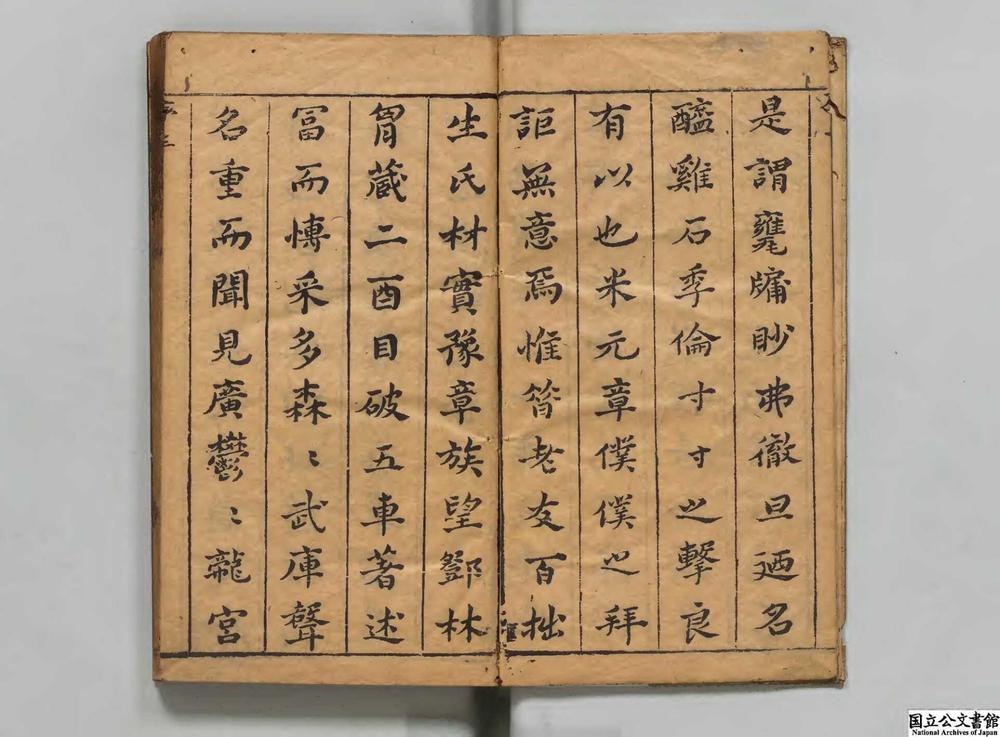 是謂甕牖眇弗徹旦廼名
醯雞石季倫寸寸之擊良
有以也米元章僕僕之拜
詎無意焉惟筲老友百拙
生氏材實豫章族望鄧林
胷蔵二酉目破五車著述
冨而愽采多森〻武庫聲
名重而聞見廣鬱〻龍宮
国立公文書館
National Archives of Japan